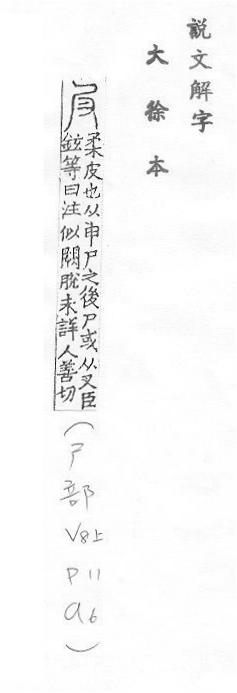 説文解字
大徐本
𡰫
柔皮也从申尸之後尸或从又臣
鉉等曰注似闕脱未詳人善切
(尸部
V8上
P11
a6)